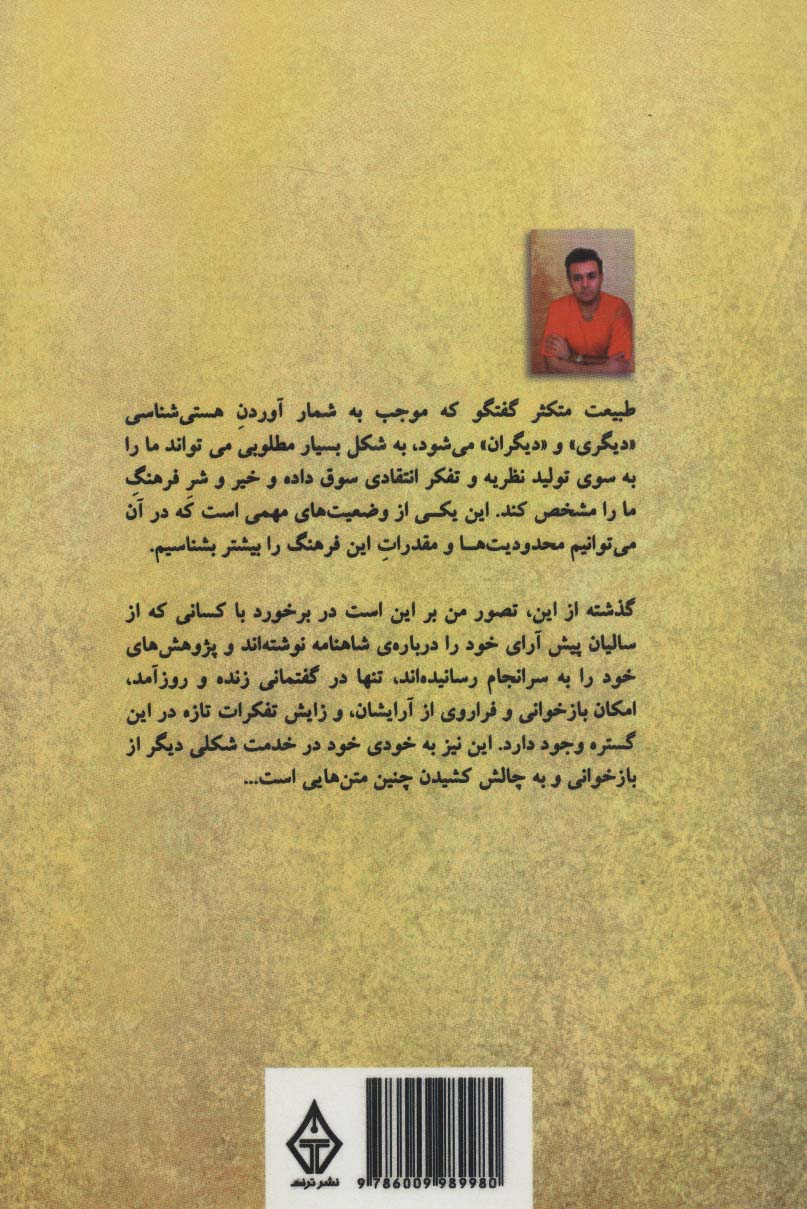 طبیعت متکثر گفتگو که موجب به شمار آوردنِ هستی‌شناسی
«دیگری» و «دیگران» می‌شود، به شکل بسیار مطلوبی می تواند ما را
به سوی تولید نظریه و تفکر انتقادی سوق داده و خیر و شرِ فرهنگِ
ما را مشخص کند. این یکی از وضعیت‌های مهمی است که در آن
می‌توانیم محدودیت‌ها و مقدراتِ این فرهنگ را بیشتر بشناسیم.
گذشته از این، تصور من بر این است در برخورد با کسانی که از
سالیان پیش آرای خود را درباره‌ی شاهنامه نوشته‌اند و پژوهش‌های
خود را به سرانجام رسانیده‌اند، تنها در گفتمانی زنده و روزآمد،
امکان بازخوانی و فراروی از آرایشان، و زایش تفکرات تازه در این
گستره وجود دارد. این نیز به خودی خود در خدمت شکلی دیگر از
بازخوانی و به چالش کشیدن چنین متن‌هایی است...
نشر ترنگ
9 786009 989980